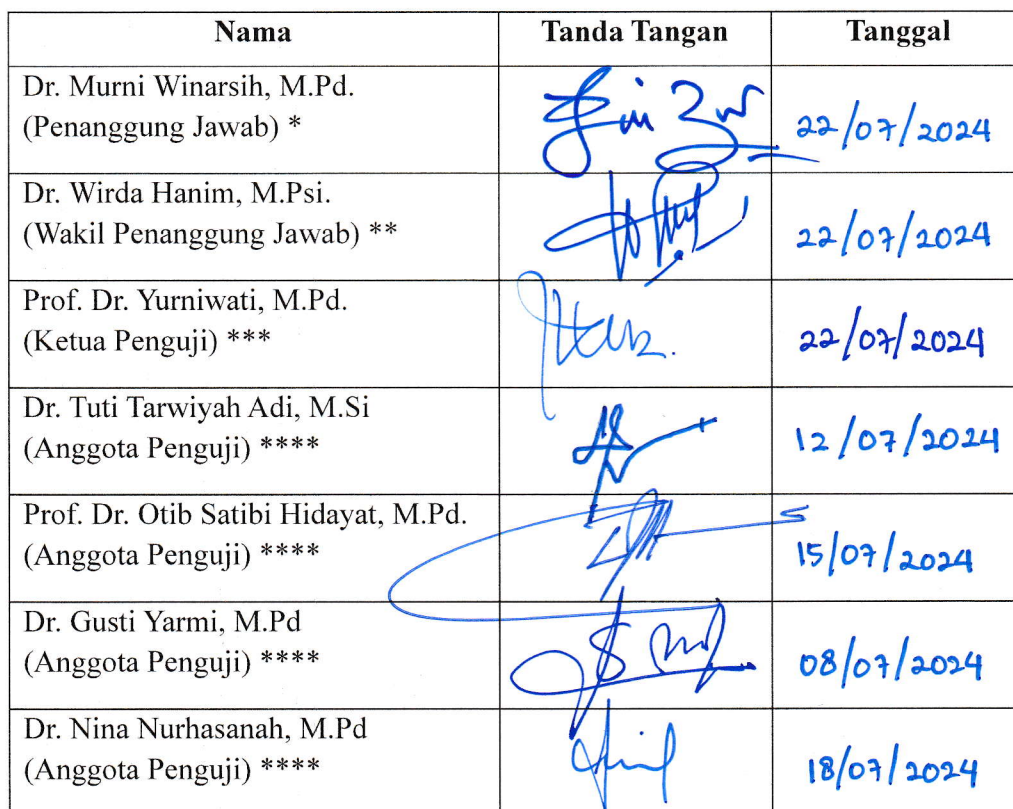 Nama Tanda Tangan Tanggal
Dr. Murni Winarsih, M.Pd.
(Penanggung Jawab) * 22/07/2024
Dr. Wirda Hanim, M.Psi.
(Wakil Penanggung Jawab) ** 22/07/2024
Prof. Dr. Yurniwati, M.Pd.
(Ketua Penguji) *** 22/07/2024
Dr. Tuti Tarwiyah Adi, M.Si
(Anggota Penguji) **** 12/07/2024
Prof. Dr. Otib Satibi Hidayat, M.Pd.
(Anggota Penguji) **** 15/07/2024
Dr. Gusti Yarmi, M.Pd
(Anggota Penguji) **** 08/07/2024
Dr. Nina Nurhasanah, M.Pd
(Anggota Penguji) **** 18/07/2024